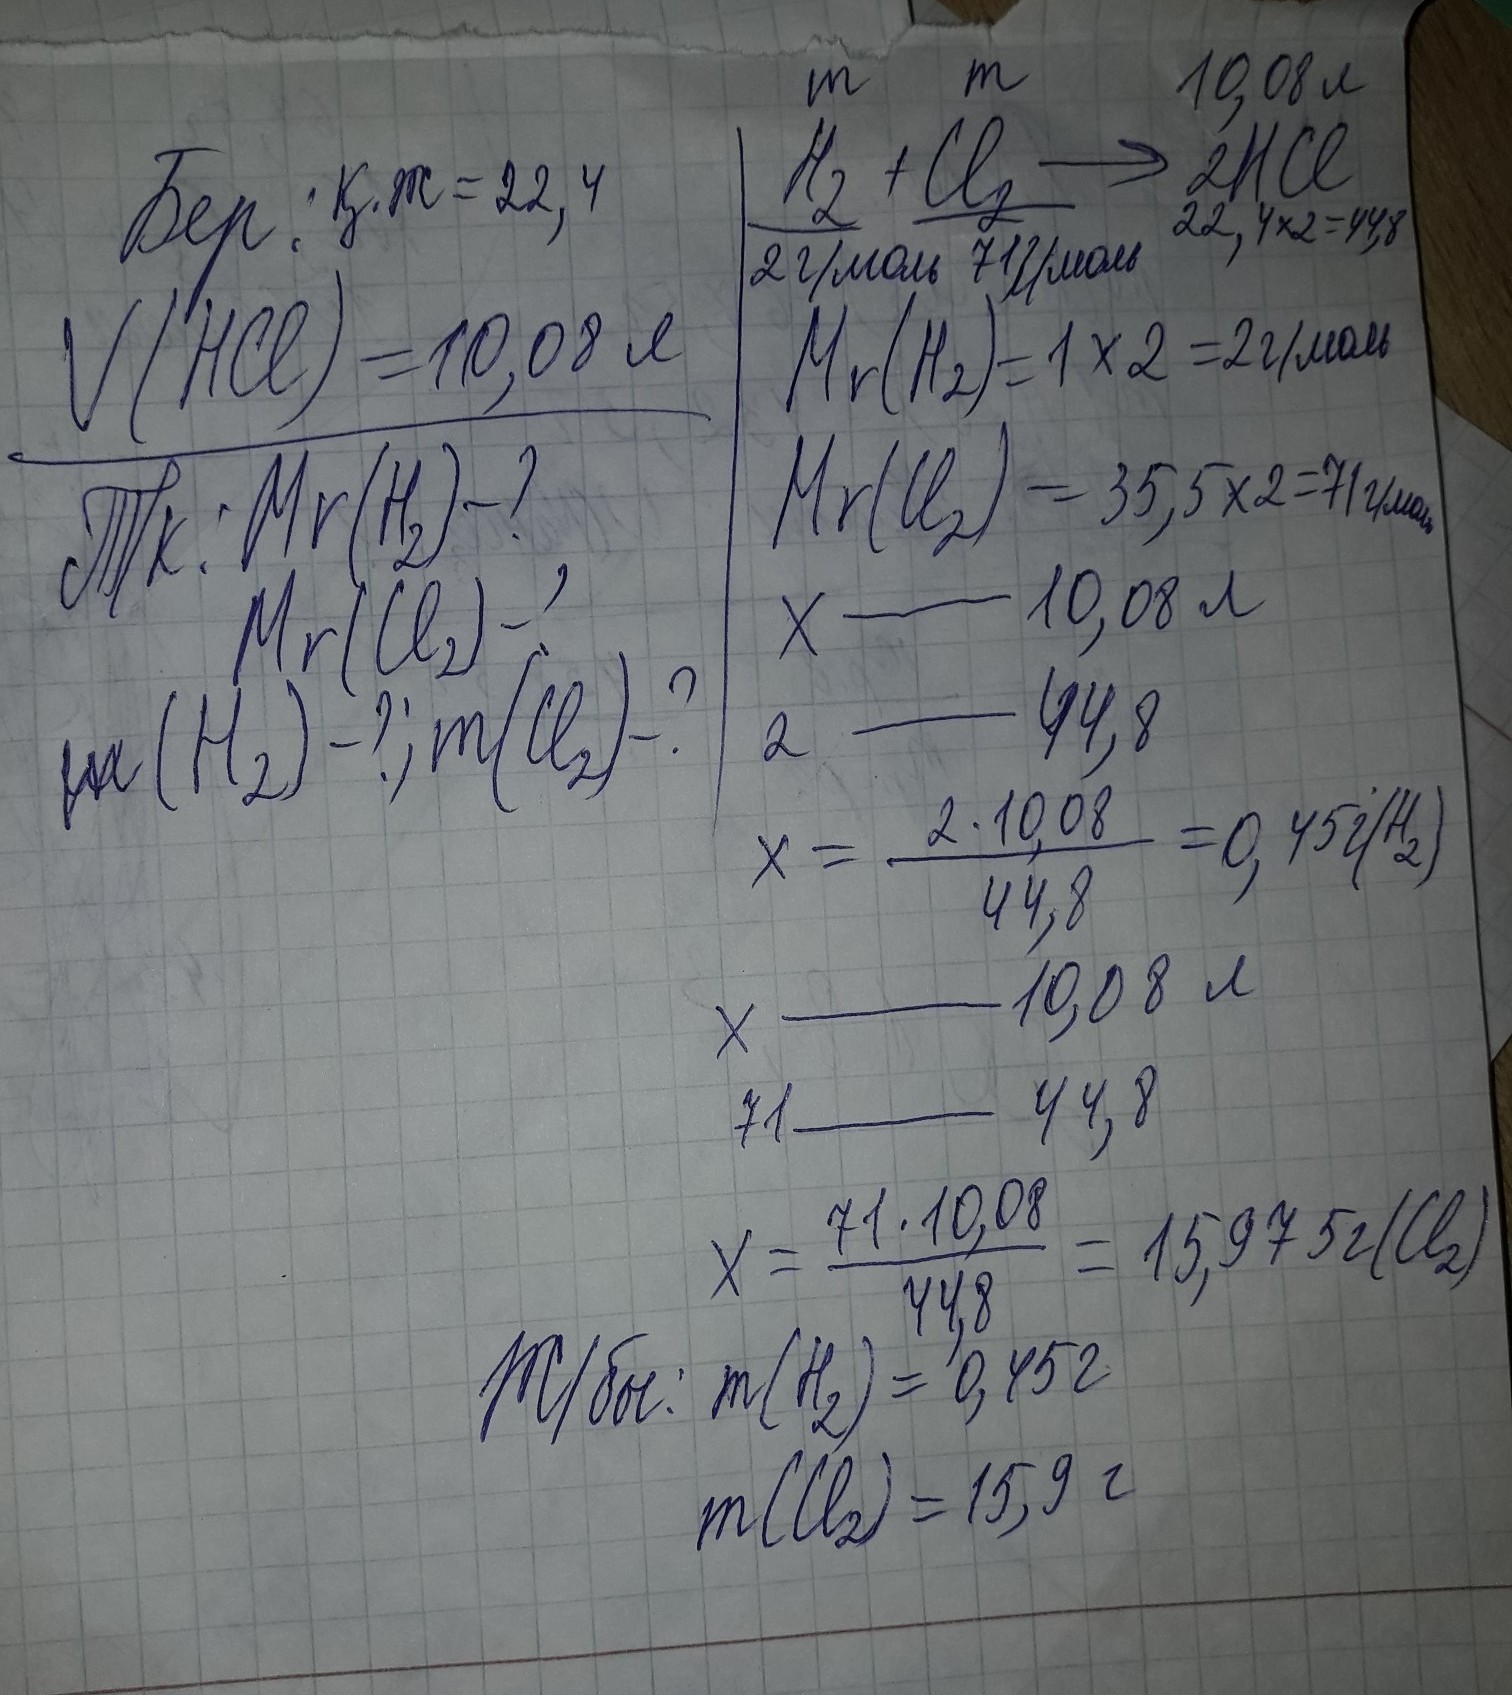 Бер: қ.ж = 22,4
V(HCl) = 10,08 л
Тк: Mr(H2) - ?
Mr(Cl2) - ?
m(H2) - ?; m(Cl2) - ?
m m 10,08 л
H2 + Cl2 → 2HCl
2 г/моль 71 г/моль 22,4x2=44,8
Mr(H2) = 1 x 2 = 2 г/моль
Mr(Cl2) = 35,5 x 2 = 71 г/моль
x — 10,08 л
2 — 44,8
x = 2 · 10,08 / 44,8 = 0,45 г (H2)
x — 10,08 л
71 — 44,8
x = 71 · 10,08 / 44,8 = 15,975 г (Cl2)
Ж/бы: m(H2) = 0,45 г
m(Cl2) = 15,9 г